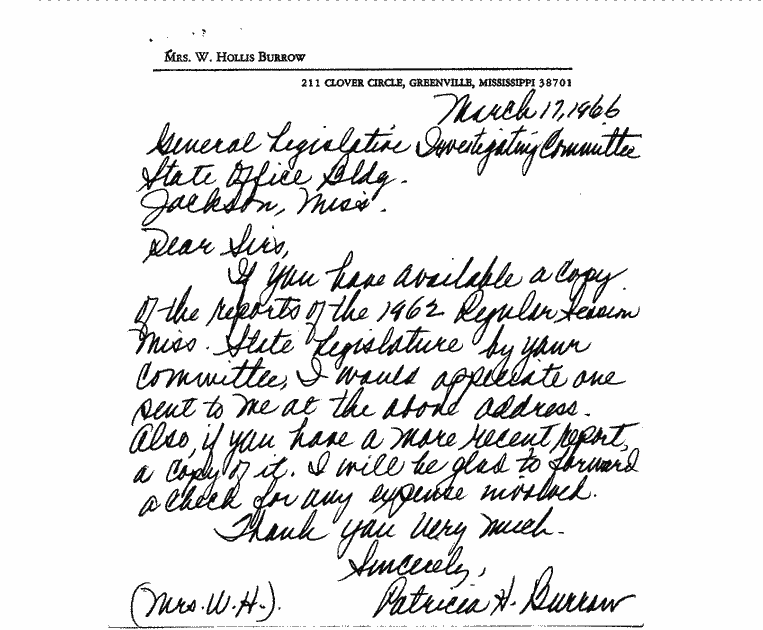 MRS. W. HOLLIS BURROW
211 CLOVER CIRCLE, GREENVILLE, MISSISSIPPI 38701
March 17, 1966
General Legislative Investigating Committee
State Office Bldg.
Jackson, Miss.
Dear Sirs,
If you have available a copy
of the reports of the 1962 Regular Session
Miss. State Legislature by your
Committee, I would appreciate one
sent to me at the above address.
Also, if you have a more recent report,
a copy of it. I will be glad to forward
a check for any expense involved.
Thank you very much.
Sincerely,
(Mrs. W.H.). Patricia H. Burrow